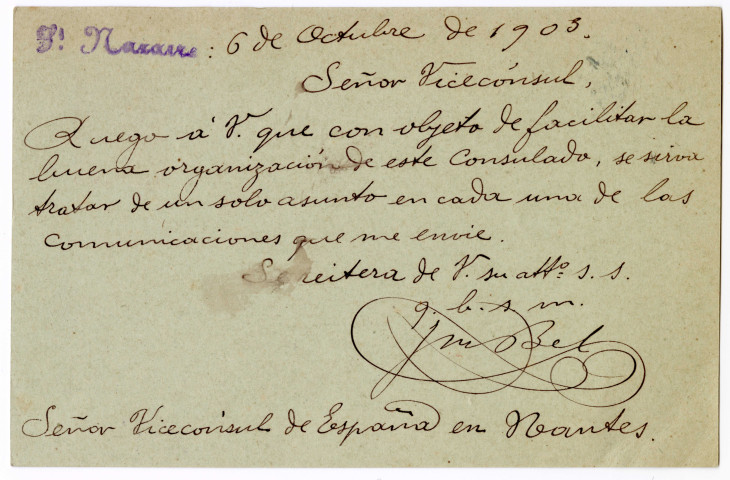 St Nazaire: 6 de Octubre de 1903.
Señor Vicecónsul,
Ruego á V. que con objeto de facilitar la
buena organización de este Consulado, se sirva
tratar de un solo asunto en cada una de las
comunicaciones que me envie.
Se reitera de V. su atto. s. s.
q. b. s. m.
Bel
Señor Vicecónsul de España en Nantes.